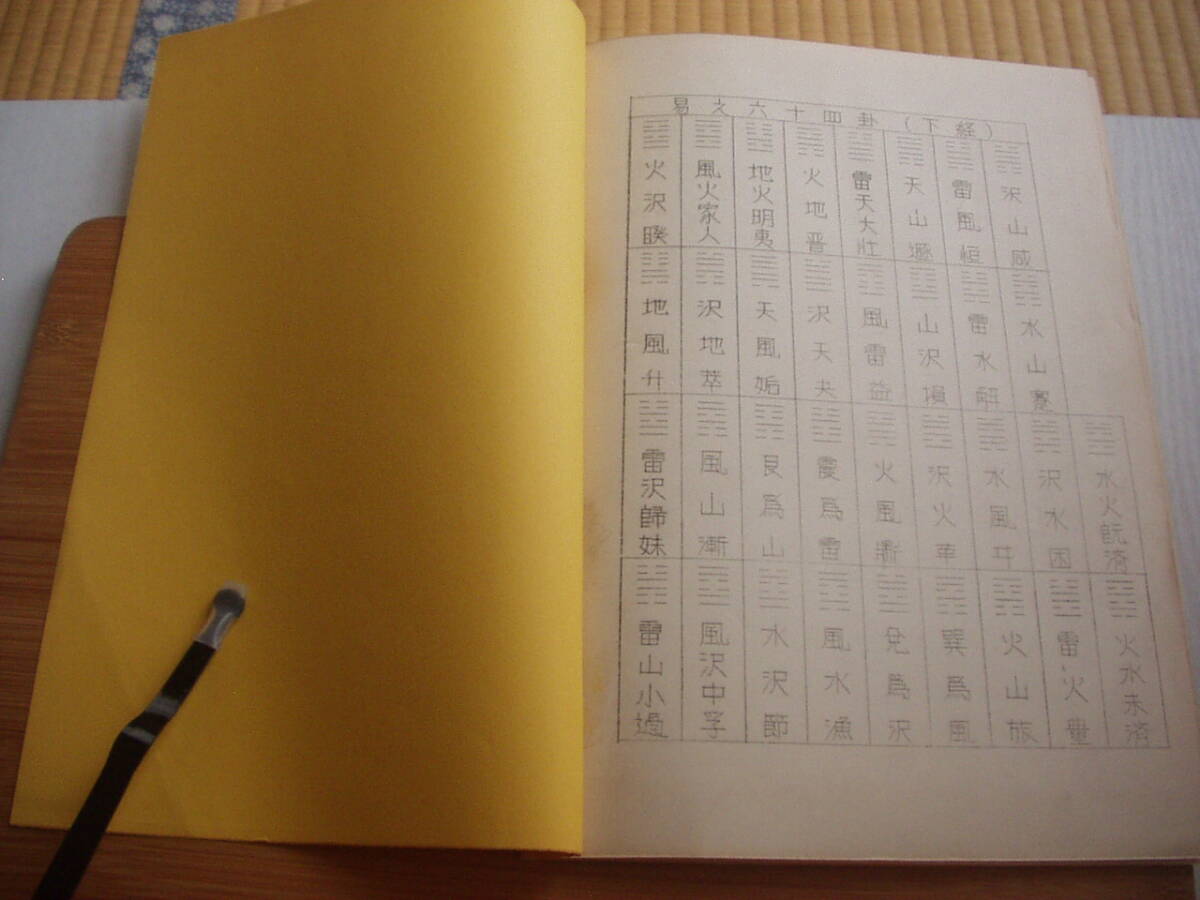 易之六十四卦(下経)
沢山咸
雷風恒
天山遯
雷天大壮
火地晋
地火明夷
風火家人
火沢睽
水山蹇
雷水解
山沢損
風雷益
沢天夬
天風姤
沢地萃
地風升
水火既済
沢水困
水風井
沢火革
火風鼎
震爲雷
艮爲山
風山漸
雷沢歸妹
火水未済
雷火豊
火山旅
巽爲風
兌爲沢
風水渙
水沢節
風沢中孚
雷山小過